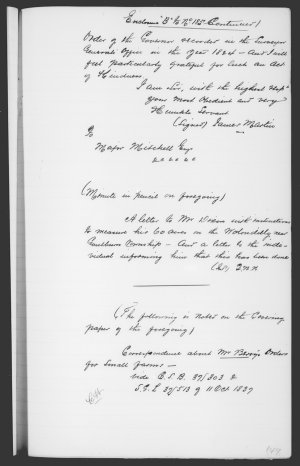 Enclosure "B" to No 112 Continued)
Order of the Governor recorded in the Surveyor
Generals Office in the year 1824 - And I will
feel particularly grateful for such an act
of Kindness
I am Sir, with the highest
your most Obedient and very
Humble Servant
(Signed) James Martin
To
Major Mitchell Esqr
(Minute in pencil on foregoing)
A letter to Mr Dixon with instructions
to measure his 60 acres on the Wollondilly near
Goulburn Township - And a letter to the indi-
vidual informing him that this has been done
(The following is noted on the Covering
paper of the foregoing)
Correspondence about Mr Berry's Orders
for Small farms -
vide C.S.O. 37/303 &
S.G.L 37/513 of 11 Oct 1837